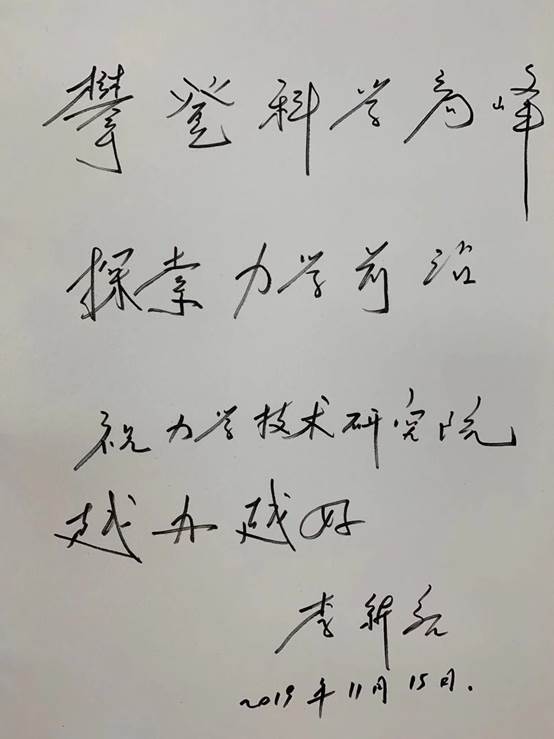 攀登科学高峰
探索力学前沿
祝力学技术研究院
越办越好
李新亮
2019年11月15日.